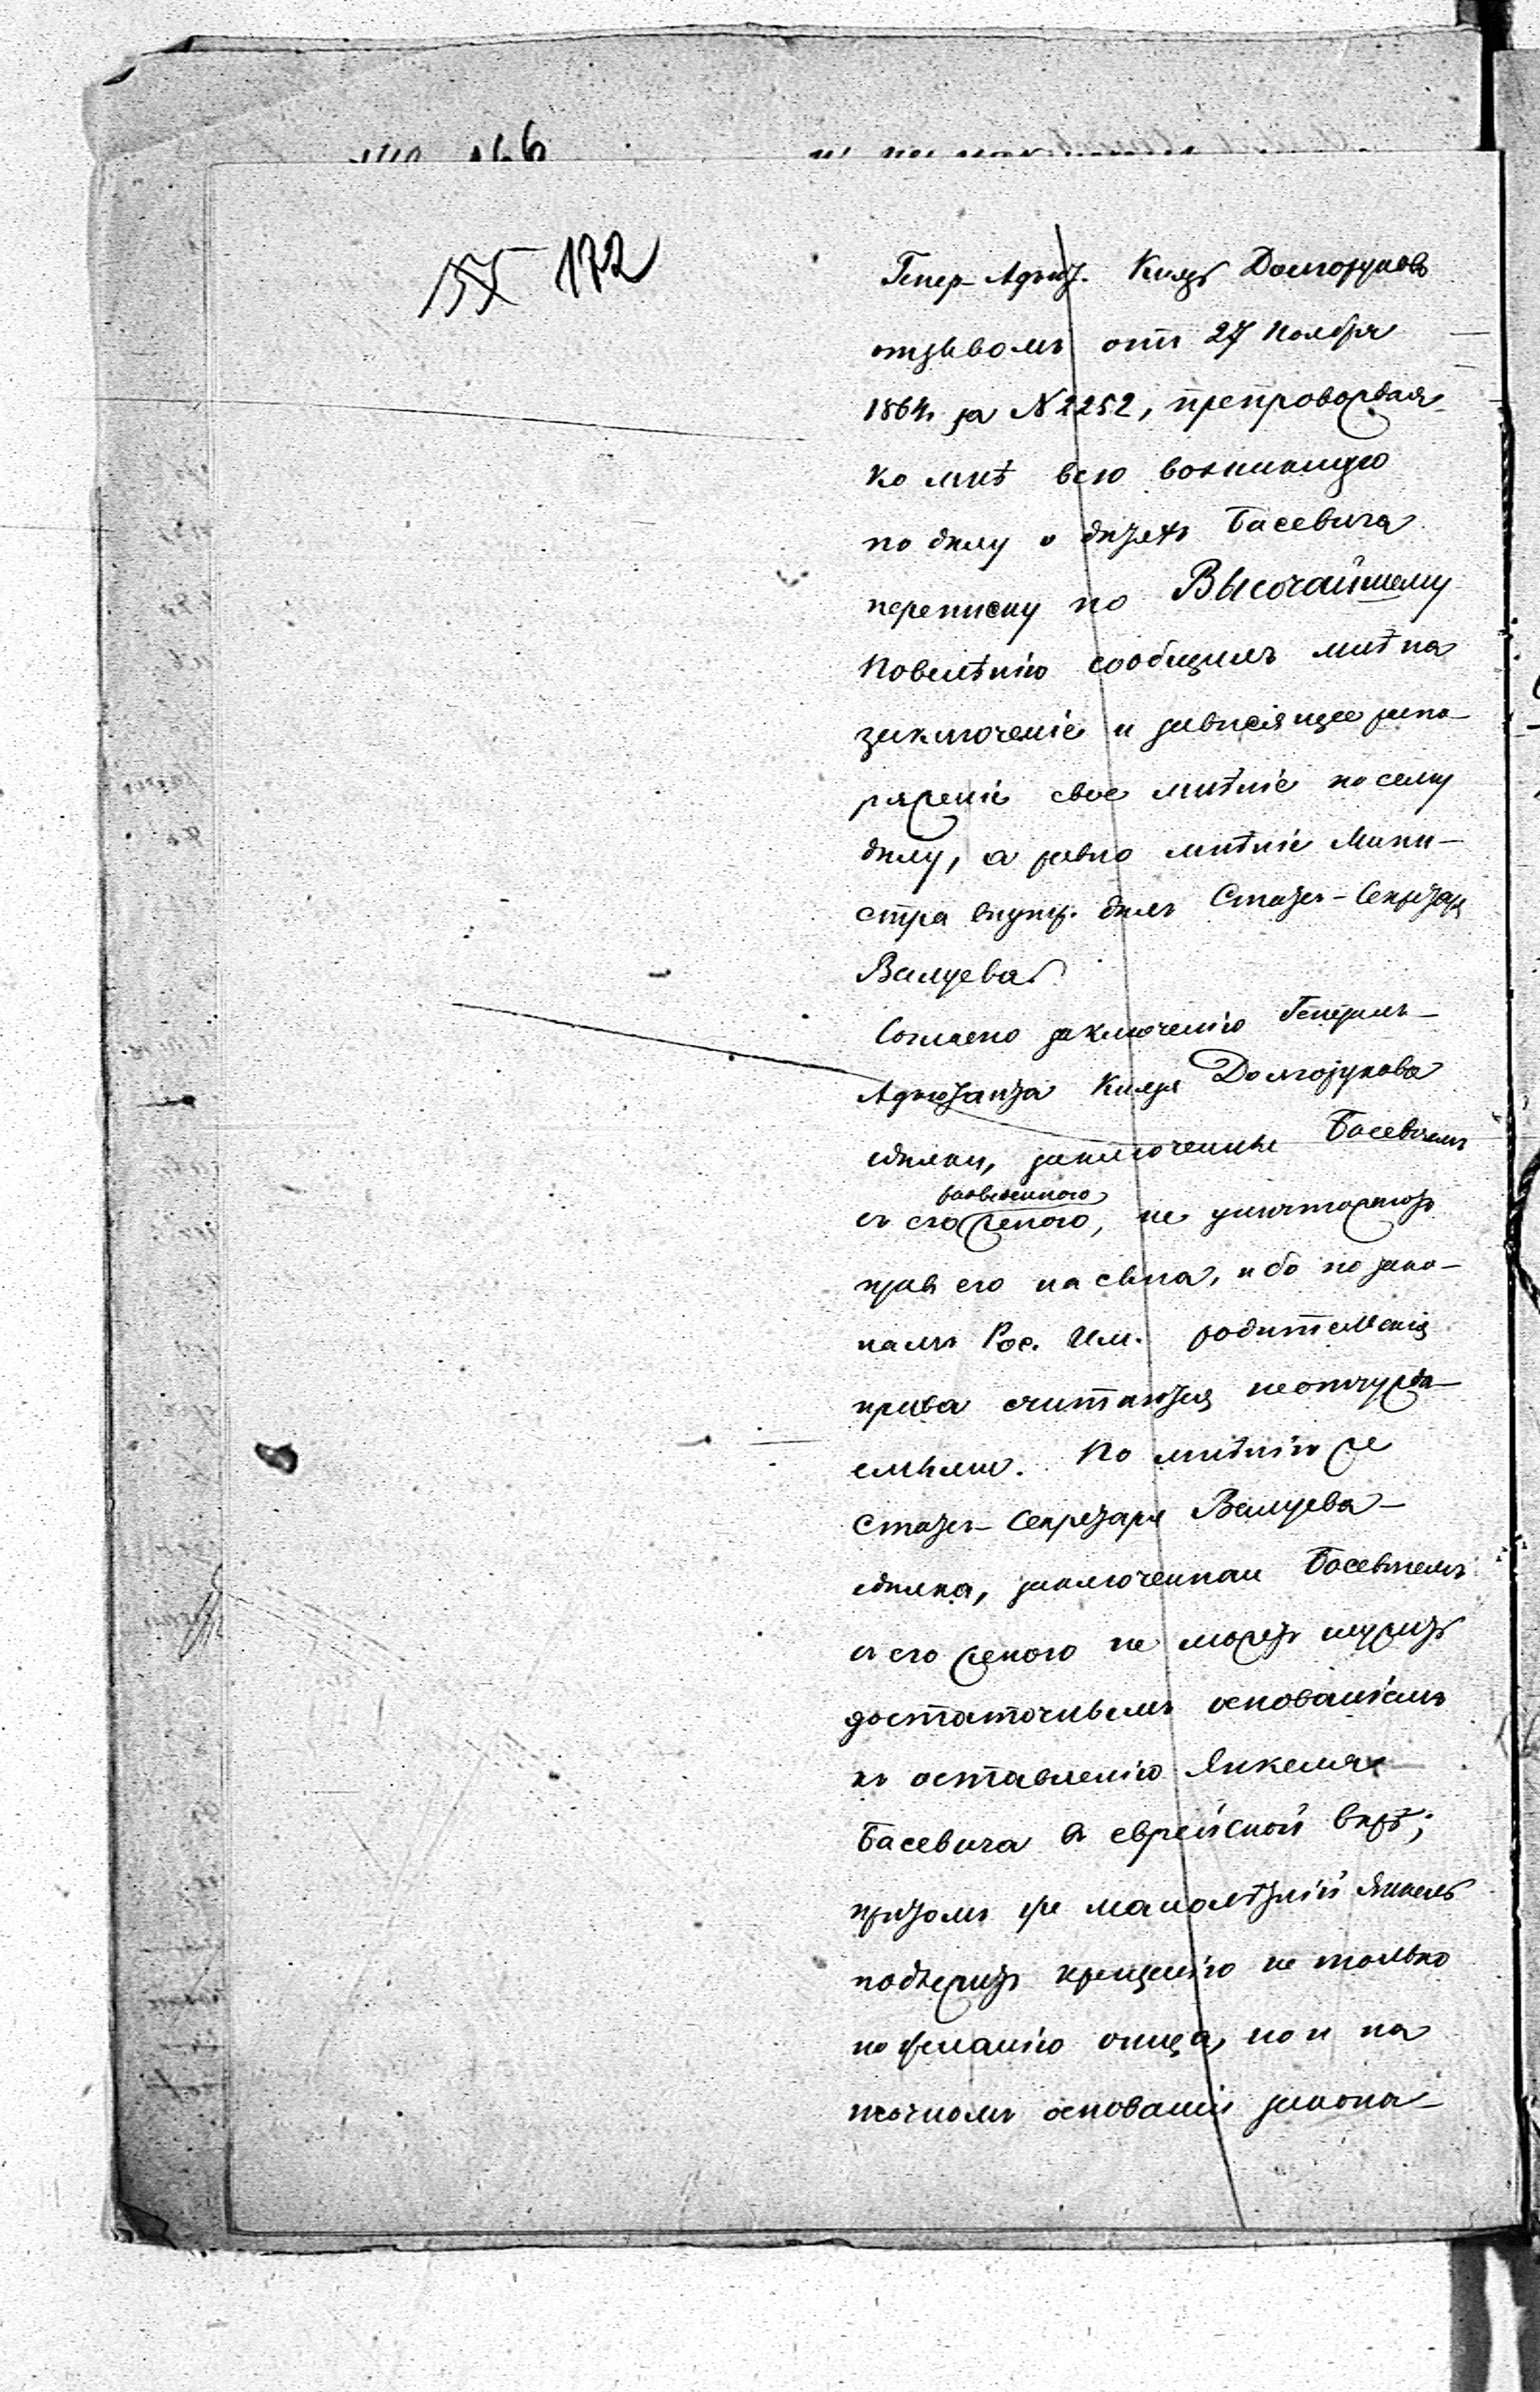 172
Генер-Адъют. Князь Долгоруковъ
отзывомъ отъ 27 Ноября
1864 за №2252, препровождая
ко мнѣ всю возникшую
по дѣлу о дѣтяхъ Басевича
переписку по Высочайшему
Повелѣнію сообщилъ мнѣ на
заключеніе и зависящее распо-
ряженіе свое мнѣніе по сему
дѣлу, а равно мнѣніе Мини-
стра внутр. дѣлъ Статсъ-Секретаря
Валуева.
Согласно заключенію Генералъ-
Адъютанта Князя Долгорукова
сдѣлки, заключенныя Басевичемъ
разведенною
съ его женою, не уничтожаютъ
правъ его на сына, ибо по зако-
намъ Рос. Им. родительскія
права считаются неотчужда-
емыми. По мнѣнію же
Статсъ-Секретаря Валуева
сдѣлка, заключенная Басевичемъ
съ его женою не можетъ служить
достаточнымъ основаніемъ
къ оставленію Янкеля
Басевича въ еврейской вѣрѣ;
притомъ же малолѣтній Янкель
подлежитъ крещенію не только
по желанію отца, но и на
точномъ основаніи закона